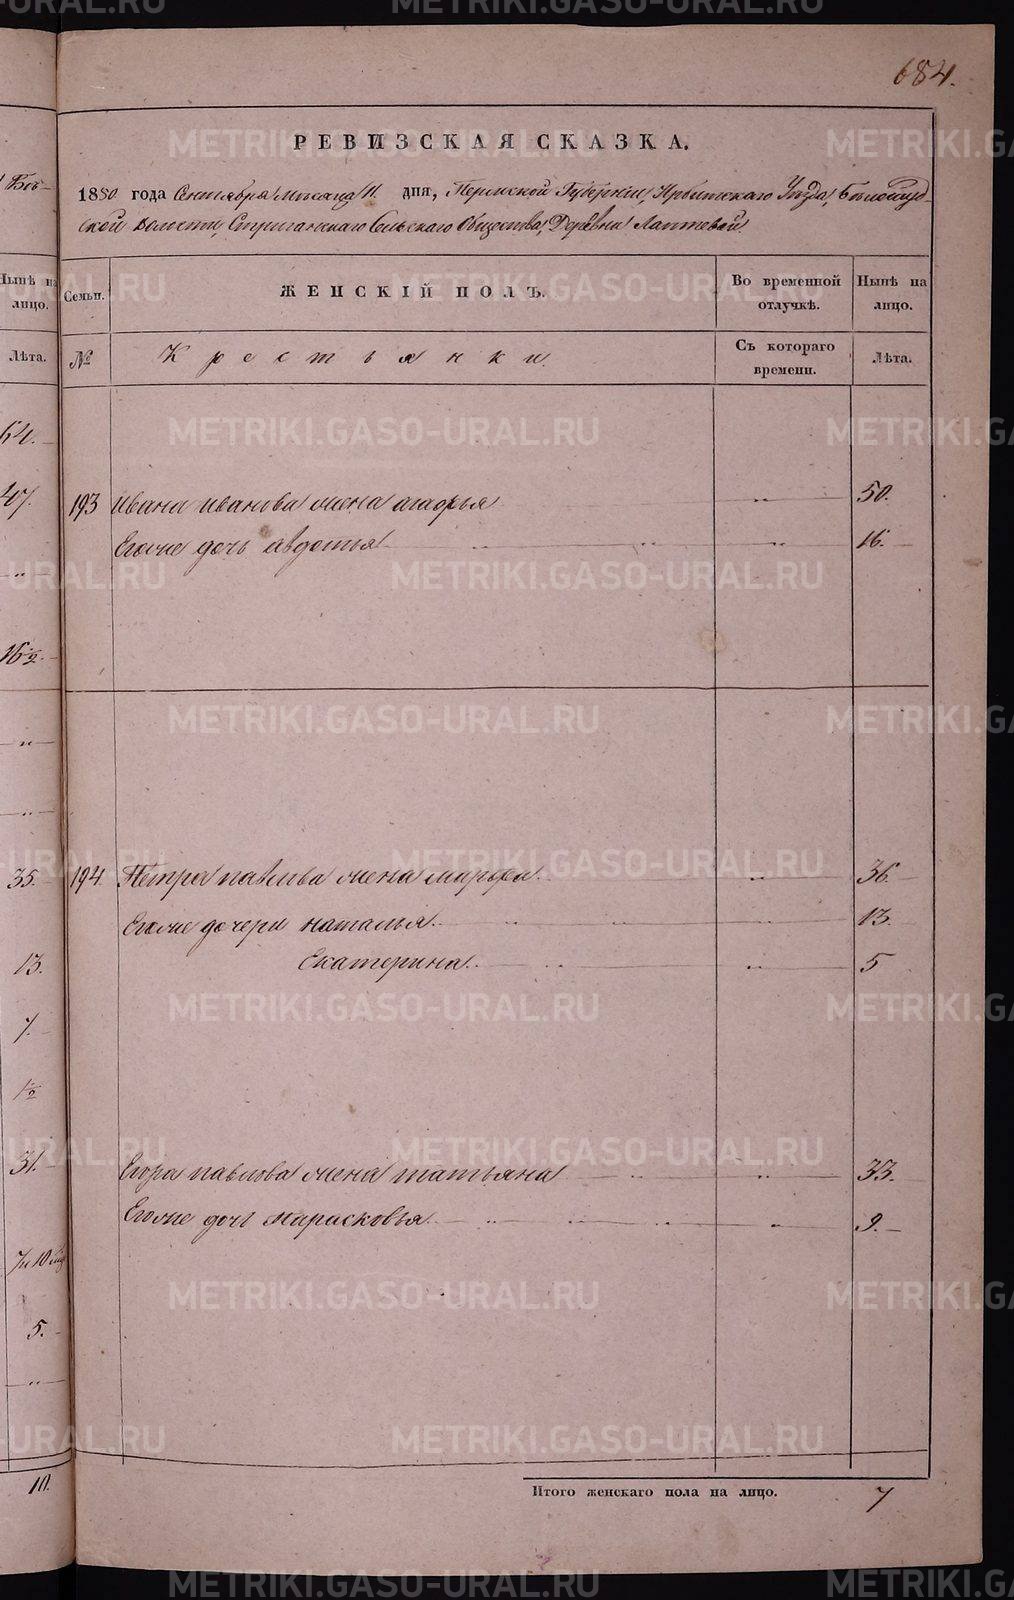 684.
РЕВИЗСКАЯ СКАЗКА.
1850 года Сентября Месяца 11 дня, Пермской Губернии, Ирбитского Уезда, Белослуд-
ской волости, Стриганского Сельского Общества, Деревни Лаптевой
Семьи. ЖЕНСКІЙ ПОЛЪ. Во временной отлучкѣ. Нынѣ на лицо.
№ Крестьянки. Съ котораго времени. Лѣта.
193 Ивана Иванова жена Агафья " 50.
Его же дочь Авдотья " " " 16.
194. Петра Павлова жена Марья " 36.
Его же дочери Наталья " " " 13.
Екатерина " " 5
Егора Павлова жена Татьяна " " 33.
Его же дочь Парасковья " " " " 9.
Итого женскаго пола на лицо. 7
Нынѣ на лицо.
Лѣта.
54.
47.
"
16½.
"
"
35.
13.
7.
½
31.
5.
"
10.
METRIKI.GASO-URAL.RU